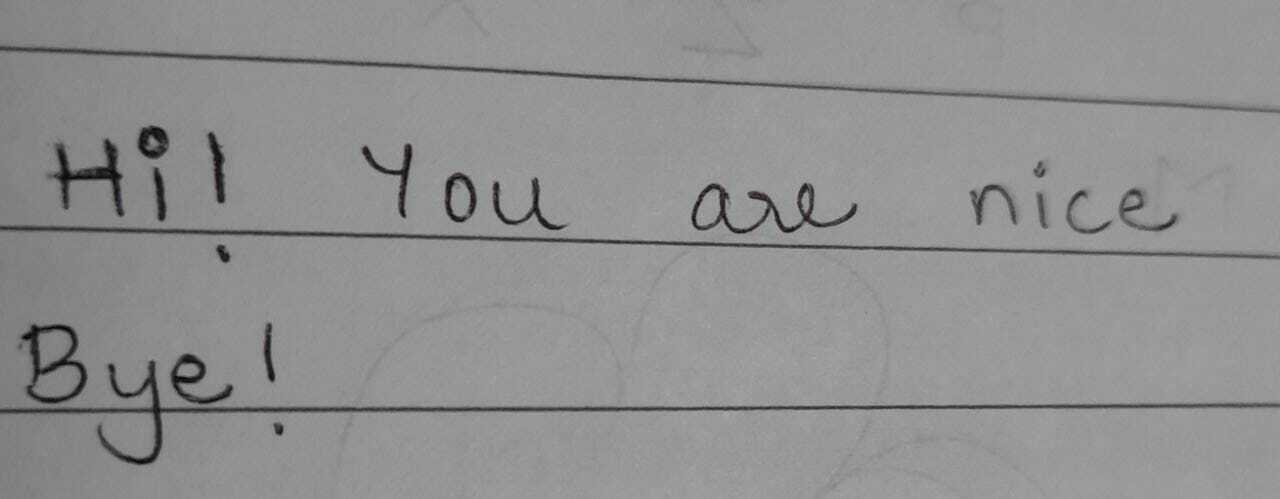 Hi! You are nice
Bye!